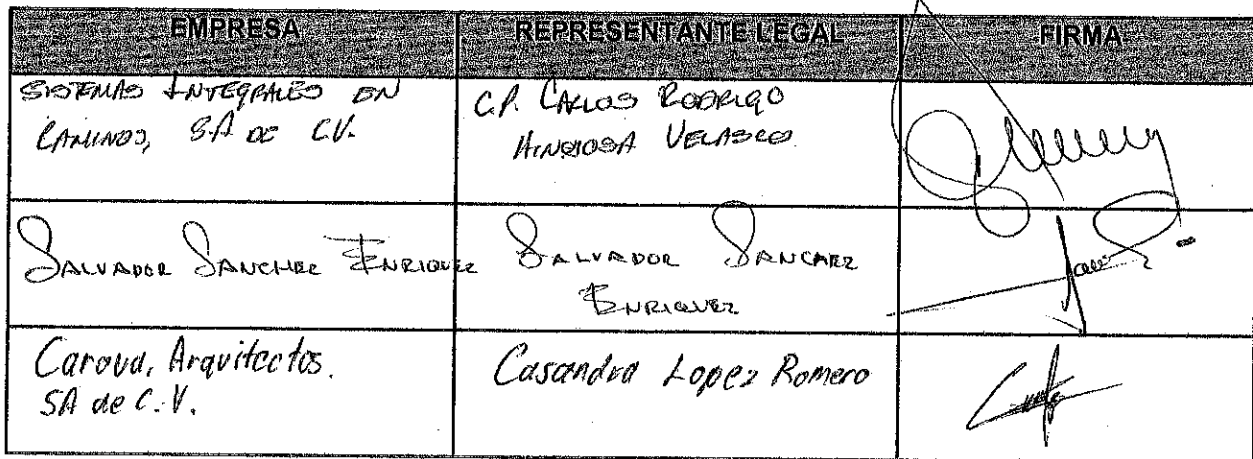 EMPRESA REPRESENTANTE LEGAL FIRMA
SISTEMAS INTEGRALES EN
CAMINOS, S.A DE C.V.
C.P. CARLOS RODRIGO
HINOJOSA VELASCO
SALVADOR SANCHEZ ENRIQUEZ
SALVADOR SANCHEZ
ENRIQUEZ
Carova, Arquitectos.
SA de C.V.
Casandra Lopez Romero